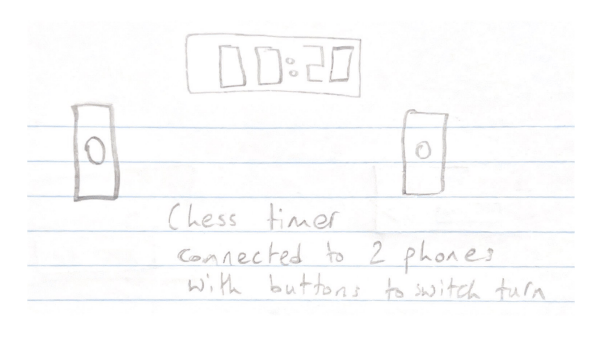 00:20
Chess timer
connected to 2 phones
with buttons to switch turn